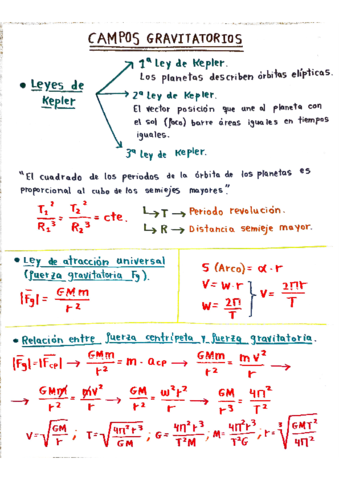 CAMPOS GRAVITATORIOS
1ª Ley de Kepler.
Los planetas describen órbitas elípticas.
• Leyes de Kepler
2ª Ley de Kepler.
El vector posición que une al planeta con
el sol (foco) barre áreas iguales en tiempos
iguales.
3ª Ley de Kepler.
"El cuadrado de los periodos de la órbita de los planetas es
proporcional al cubo de los semiejes mayores."
T₁²/R₁³ = T₂²/R₂³ = cte.
↳ T → Periodo revolución.
↳ R → Distancia semieje mayor.
• Ley de atracción universal
(fuerza gravitatoria Fg).
|Fg| = GMm/r²
S (Arco) = α·r
V = w·r
W = 2π/T
} V = 2πr/T
• Relación entre fuerza centrípeta y fuerza gravitatoria.
|Fg| = |Fcp| → GMm/r² = m·acp → GMm/r² = mv²/r →
→ GMm/r² = mv²/r → GM/r² = w²r²/r → GM/r³ = 4π²/T²
V = √(GM/r) ; T = √(4π²r³/GM) ; G = 4π²r³/T²M ; M = 4π²r³/T²G ; r = ³√(GMT²/4π²)